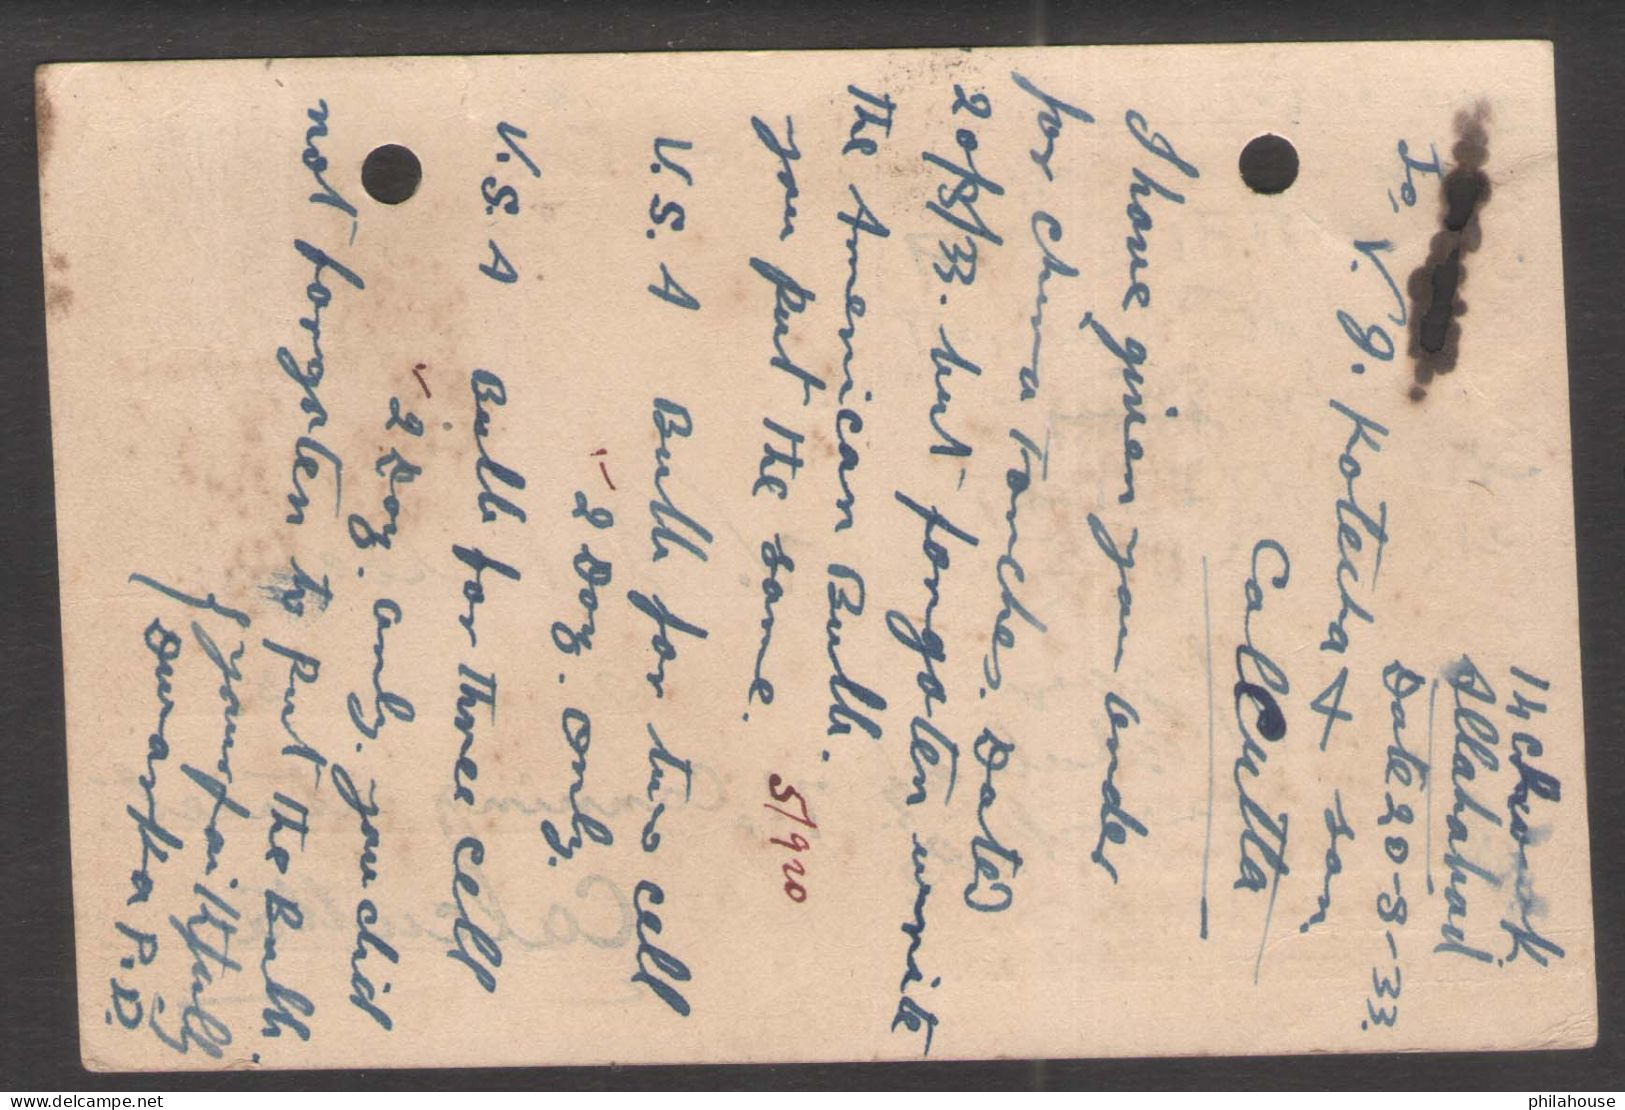 14 Chowk.
Allahabad
Date 20-9-33.
To.
V. J. Kotecha & son,
Calcutta
I have given you order
for china Tonches. Dated
20/9/33. but forgoten write
the American Bulb.
you put the same.
5/920
U.S.A Bulb for two cell
2 Doz. only.
U.S.A Bulb for three cell
2 Doz. only. you did
not forgoten to put the Bulb.
yours faithfully
Dwarka P. D.
philahouse